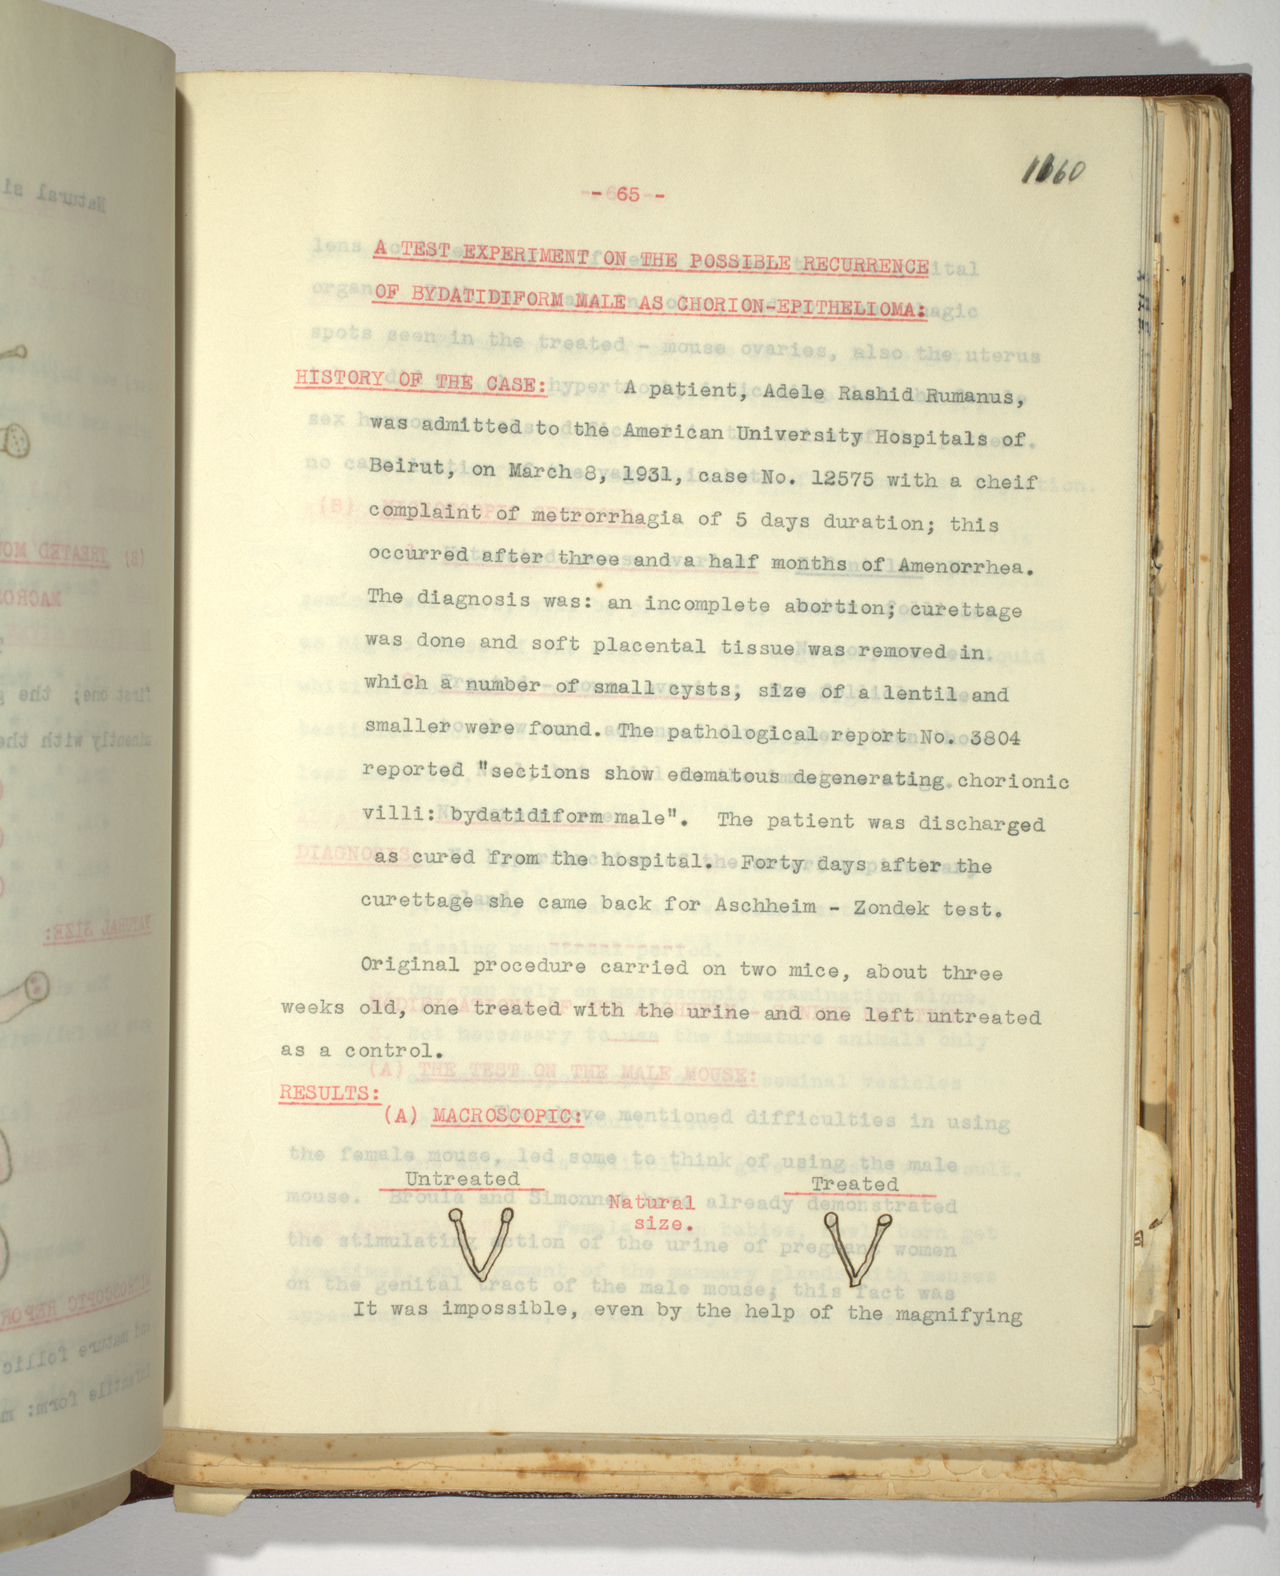 1060
- 65 -
A TEST EXPERIMENT ON THE POSSIBLE RECURRENCE
OF BYDATIDIFORM MALE AS CHORION-EPITHELIOMA:
HISTORY OF THE CASE: A patient, Adele Rashid Rumanus,
was admitted to the American University Hospitals of
Beirut, on March 8, 1931, case No. 12575 with a cheif
complaint of metrorrhagia of 5 days duration; this
occurred after three and a half months of Amenorrhea.
The diagnosis was: an incomplete abortion; curettage
was done and soft placental tissue was removed in
which a number of small cysts, size of a lentil and
smaller were found. The pathological report No. 3804
reported "sections show edematous degenerating chorionic
villi: bydatidiform male". The patient was discharged
as cured from the hospital. Forty days after the
curettage she came back for Aschheim - Zondek test.
Original procedure carried on two mice, about three
weeks old, one treated with the urine and one left untreated
as a control.
RESULTS:
(A) MACROSCOPIC:
Untreated
Treated
Natural
size.
It was impossible, even by the help of the magnifying